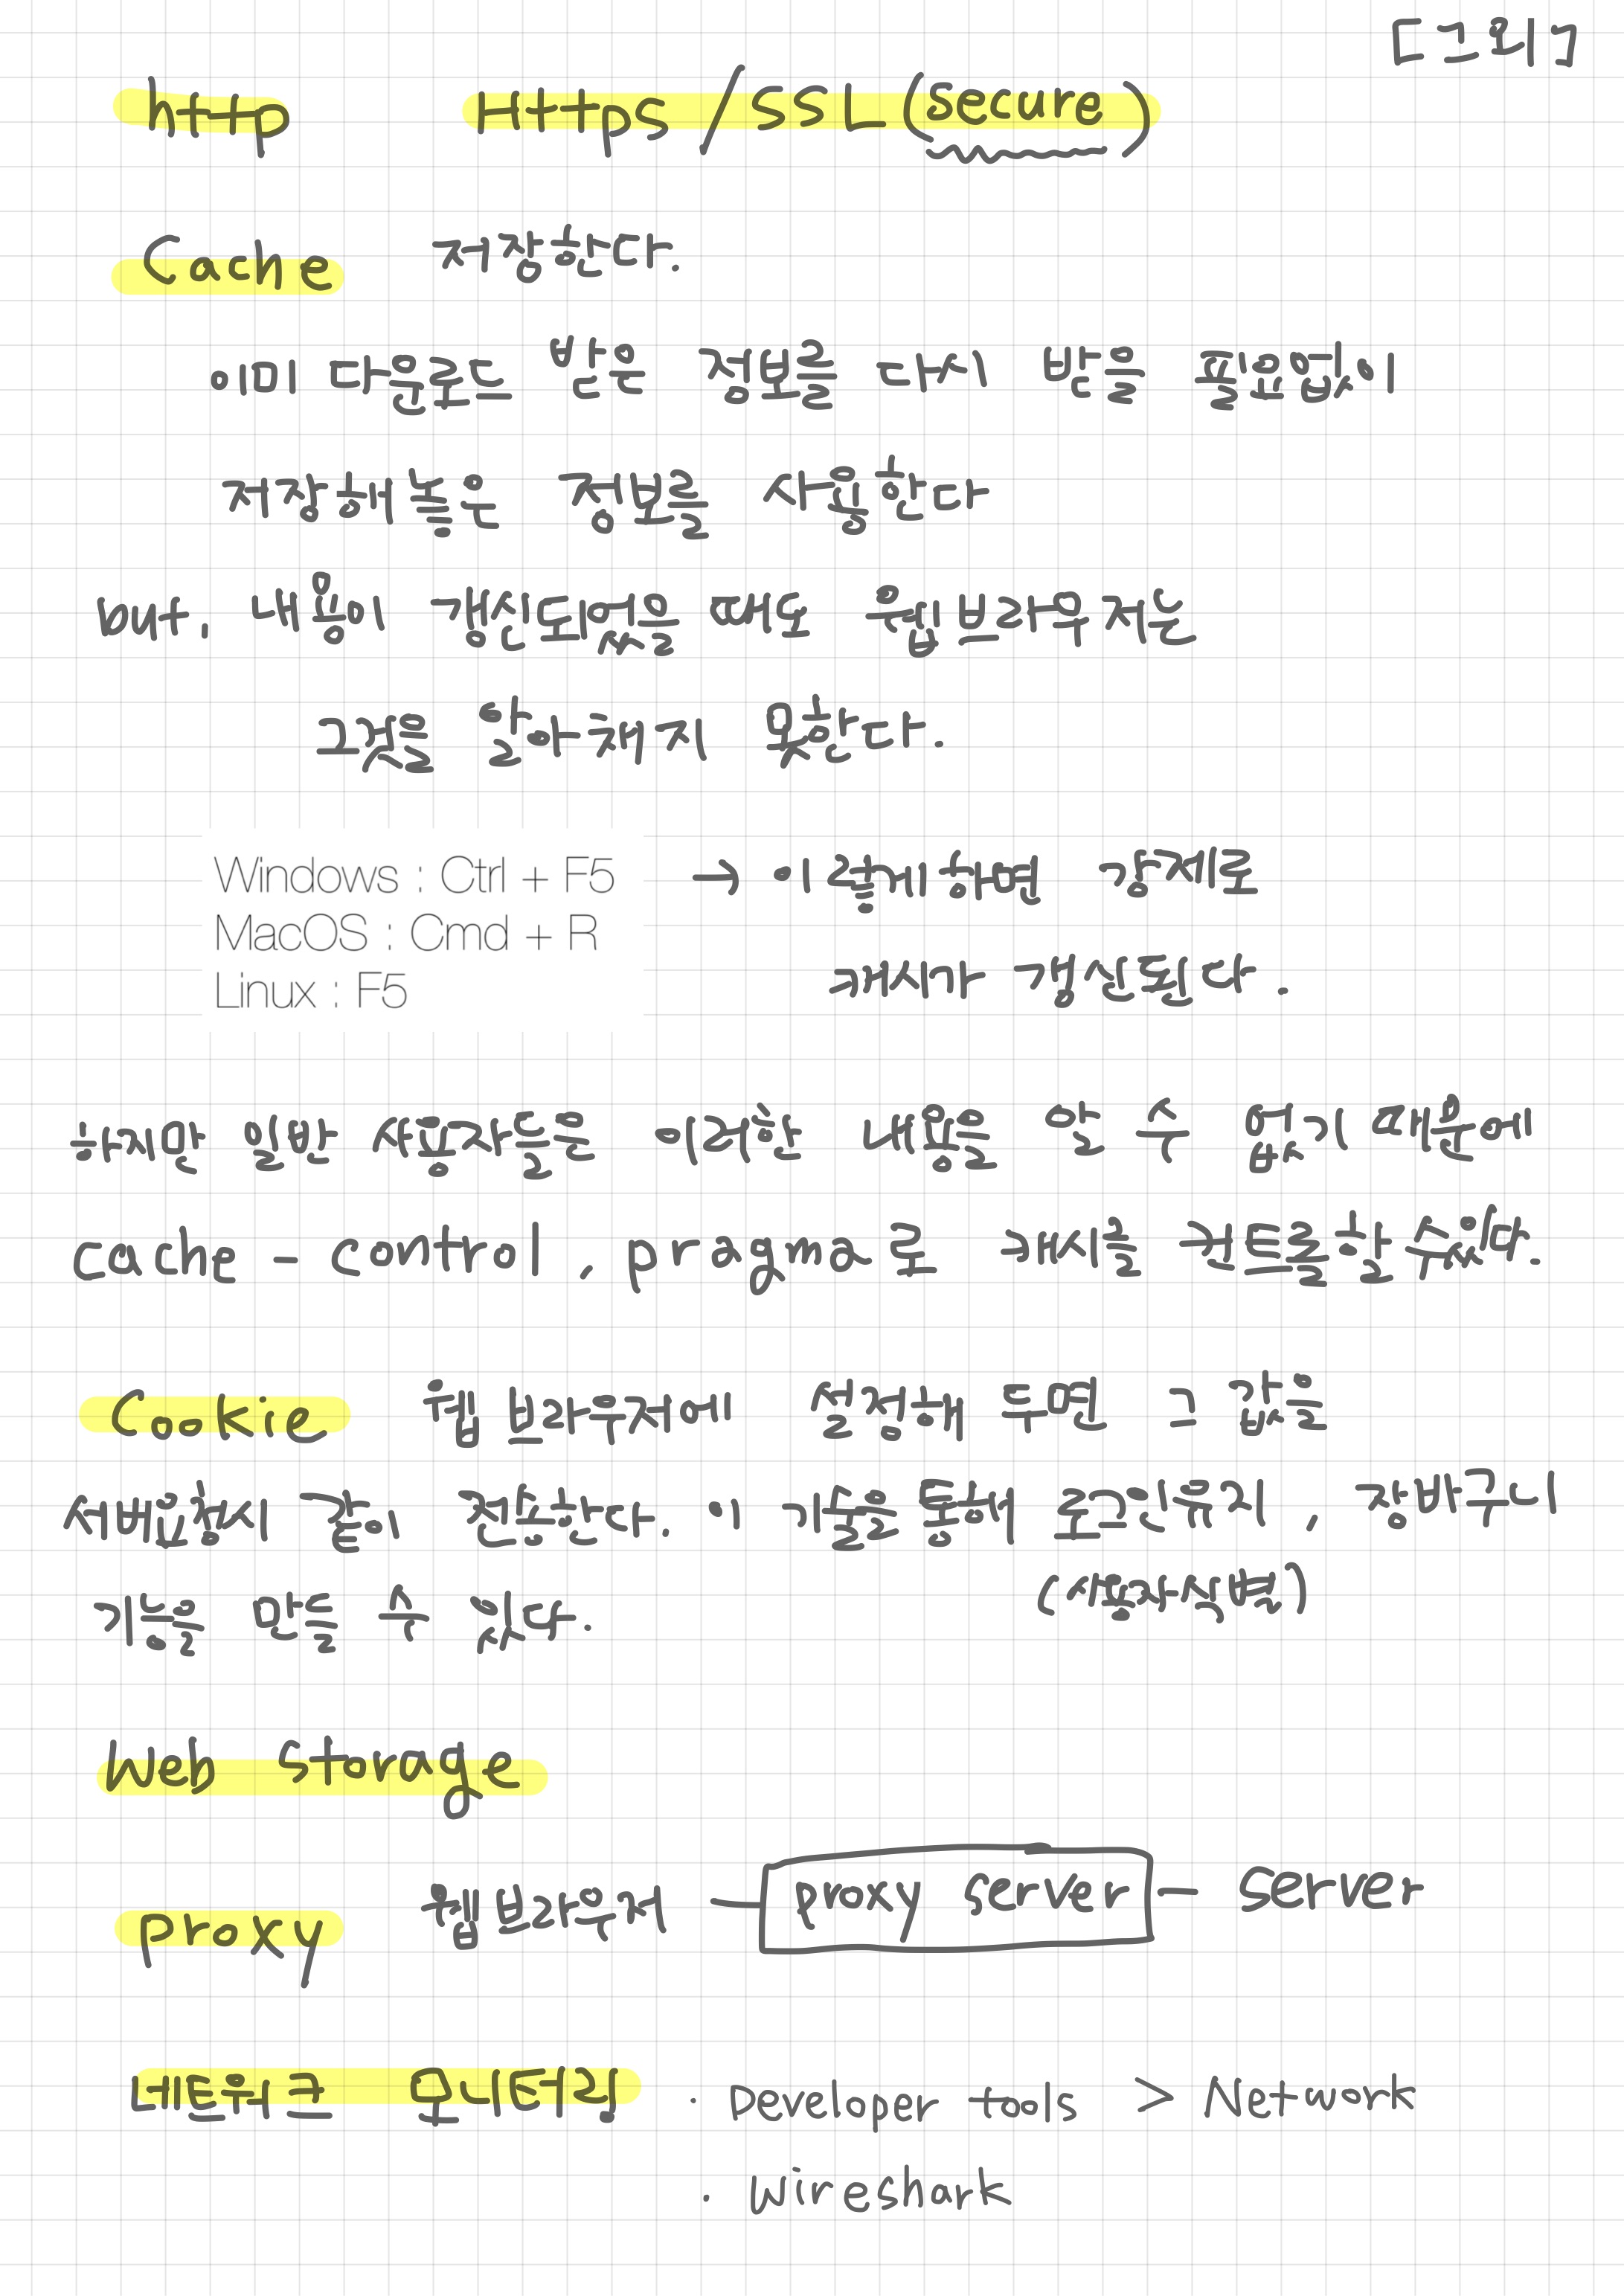 [그외]
http Https/SSL(secure)
Cache 저장한다.
이미 다운로드 받은 정보를 다시 받을 필요없이
저장해놓은 정보를 사용한다
but, 내용이 갱신되었을 때도 웹브라우저는
그것을 알아채지 못한다.
Windows : Ctrl + F5 → 이렇게하면 강제로
MacOS : Cmd + R
캐시가 갱신된다.
Linux : F5
하지만 일반 사용자들은 이러한 내용을 알 수 없기 때문에
cache - control, pragma로 캐시를 컨트롤할 수 있다.
Cookie 웹브라우저에 설정해 두면 그 값을
서버요청시 같이 전송한다. 이 기능을 통해 로그인유지, 장바구니
(사용자식별)
기능을 만들 수 있다.
Web storage
proxy 웹브라우저 - proxy server - server
네트워크 모니터링 · Developer tools > Network
· Wireshark